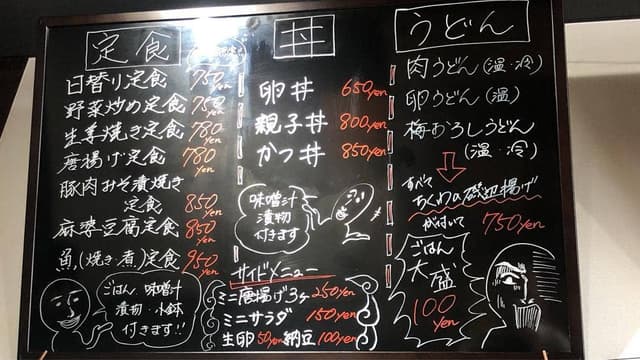 定食
日替り定食 750yen
野菜炒め定食 750yen
生姜焼き定食 780yen
唐揚げ定食 780yen
豚肉みそ漬焼き
定食 850yen
麻婆豆腐定食 850yen
魚(焼き・煮)定食 950yen
ごはん 味噌汁
漬物・小鉢
付きます!!
丼
卵丼 650yen
親子丼 800yen
かつ丼 850yen
味噌汁
漬物
付きます
サイドメニュー
ミニ唐揚げ3ヶ 250yen
ミニサラダ 150yen
生卵 50yen 納豆 100yen
うどん
肉うどん(温・冷)
卵うどん(温)
梅おろしうどん
(温・冷)
すべて
ちくわの磯辺揚げ
が付いて 750yen
ごはん
大盛
100
yen